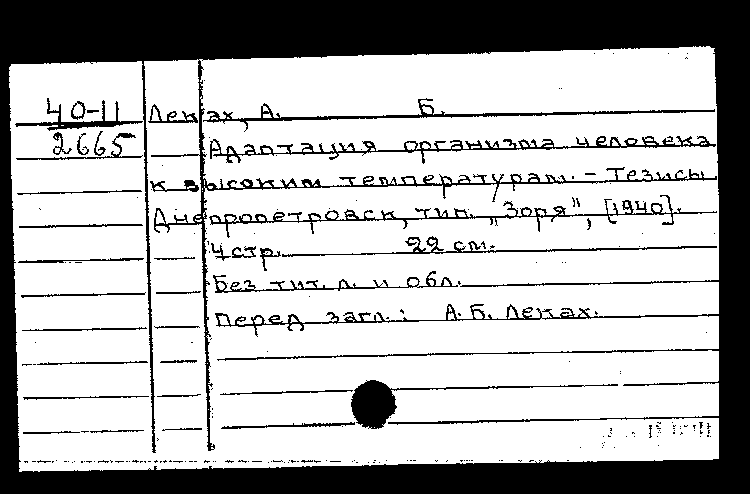 40-11 Леках, А. Б.
2665 Адаптация организма человека
к высоким температурам. - Тезисы
Днепропетровск, тип. „Зоря", [1940].
4 стр. 22 см.
Без тит. л. и обл.
Перед загл.: А. Б. Леках.